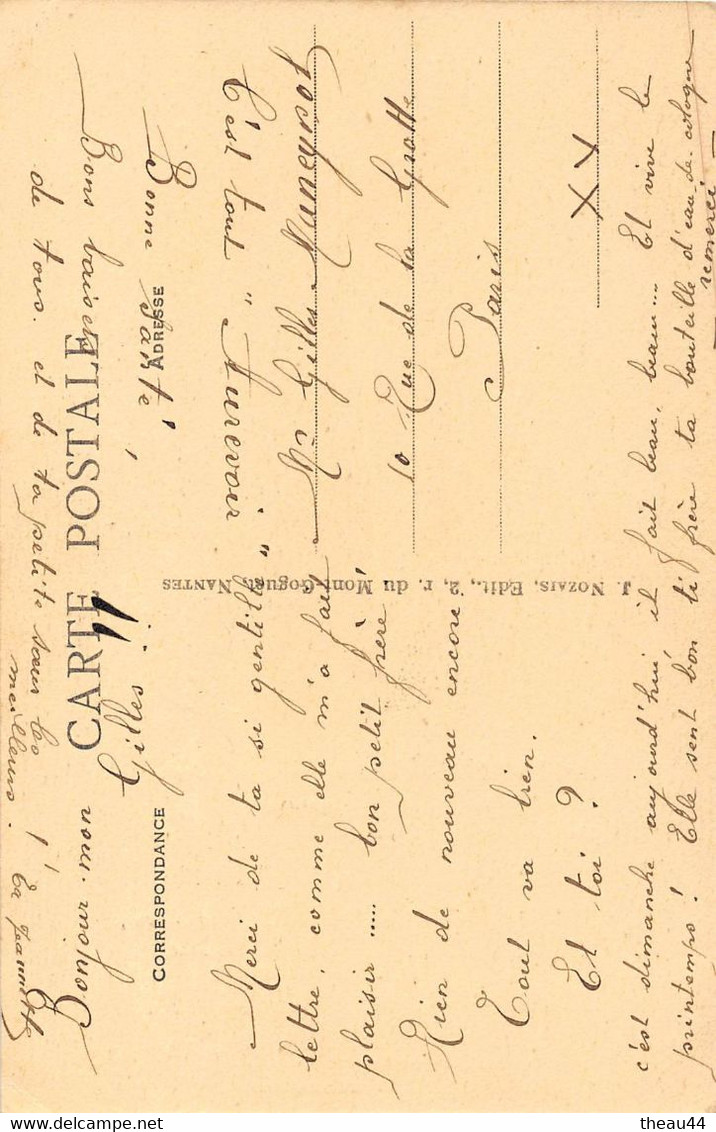 CARTE POSTALE
CORRESPONDANCE
ADRESSE
Bonjour. mon
Gilles
Merci de ta si gentille
lettre, comme elle m'a fait
plaisir..... bon petit frère!
Rien de nouveau encore
Tout va bien.
Et toi ?
c'est dimanche aujourd'hui il fait beau, beau... Et vive le
printemps! Elle sent bon ti frère ta bouteille d'eau-de-cologne
remerci
C'est tout "Aurevoir"
Bonne santé
Bons baisers
de tous. et de ta petite sœur les
meilleurs. !
Ta Jeannette
Mr Gilles
10 Rue de la Grotte
Paris
XV
J. NOZAIS, Edit., 2, r. du Mont-Goguet, NANTES
theau44